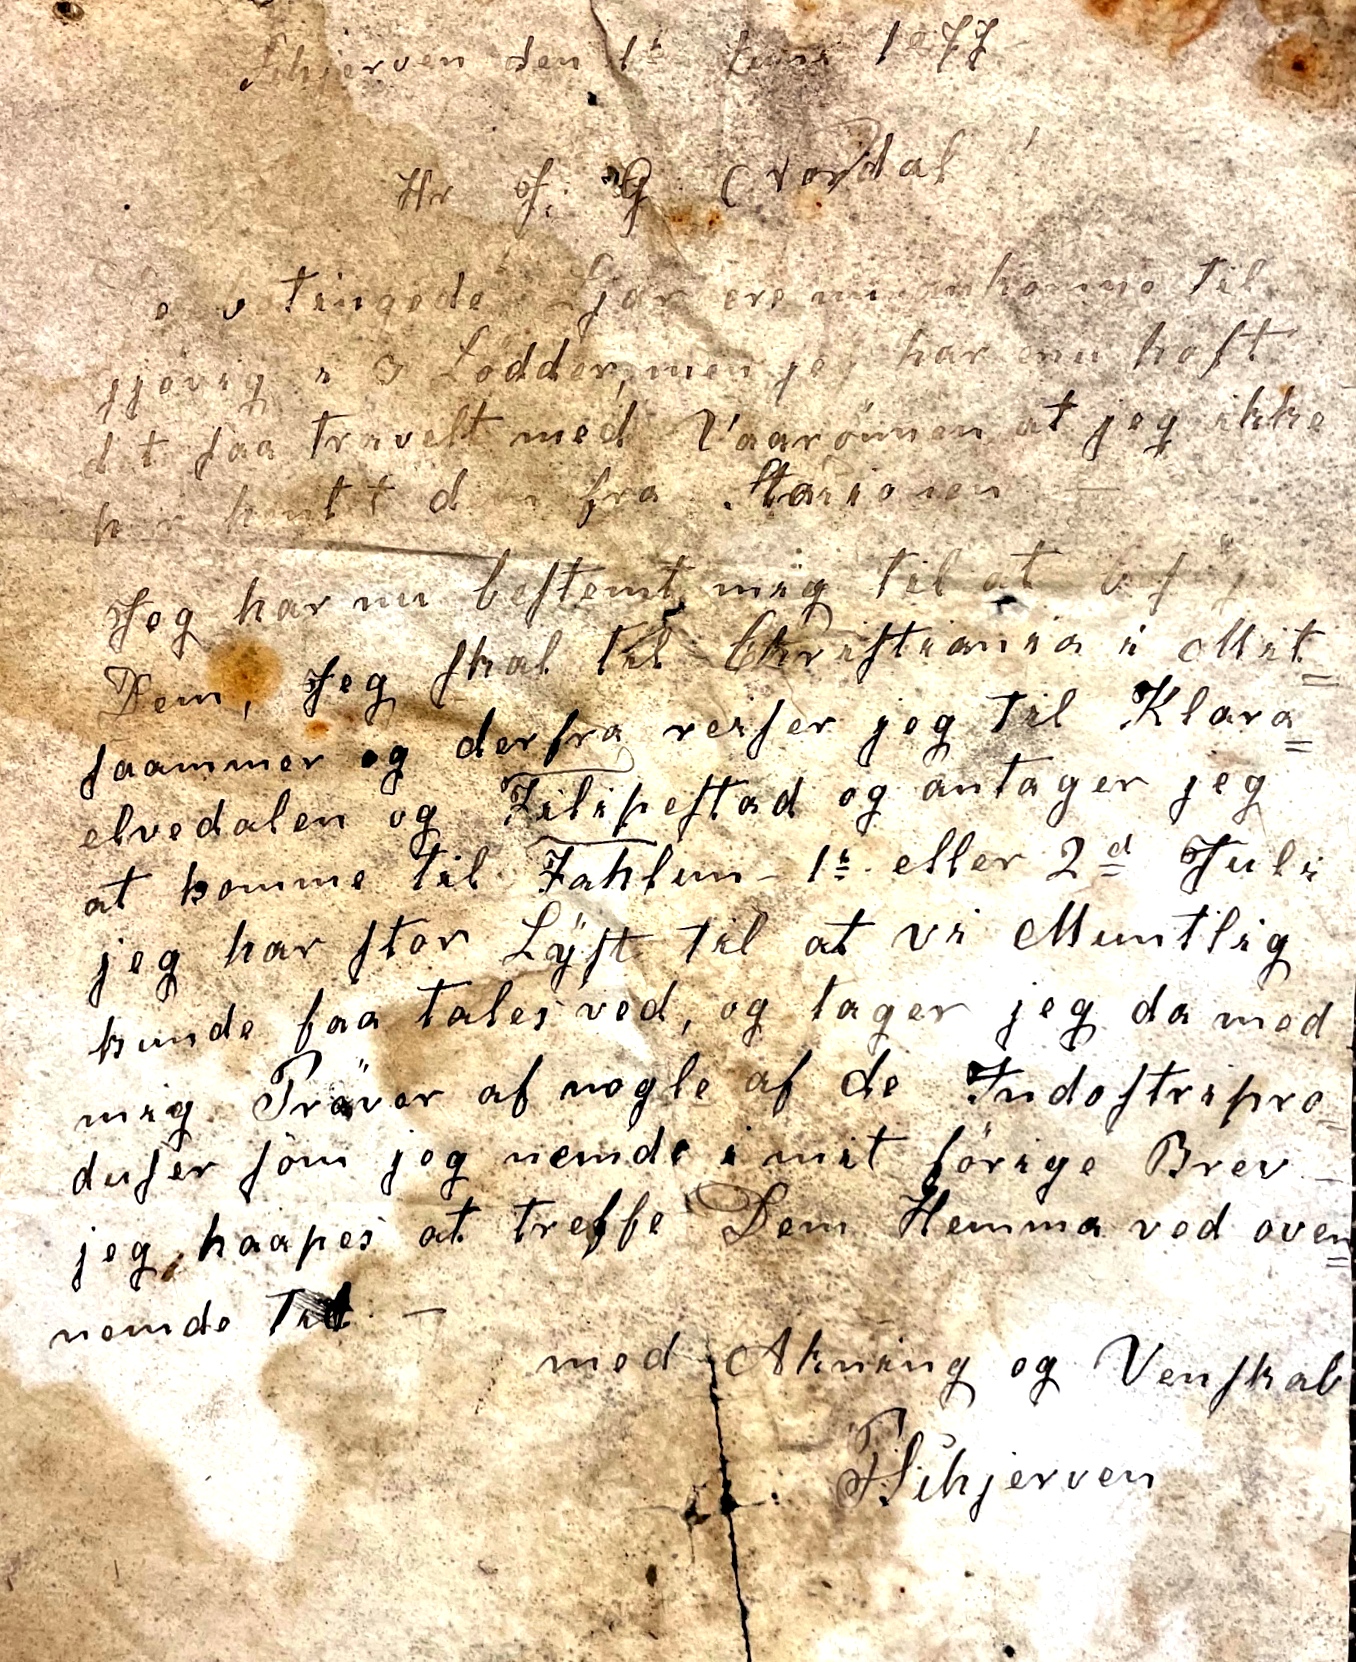 den 1ste Juni 1877
Hr J. G.
til
gjøvig i 3 Lødder, men jeg har enu haft
saa travelt med Vaarønnen at jeg ikke
fra Stasionen —
Jeg har nu bestemt mig til at
Dem, Jeg skal til Christiania i Mit=
saammer og derfra reiser jeg til Klara=
elvedalen og Filipestad og antager jeg
at komme til Fahlun – 1ste eller 2d Juli
jeg har stor Lÿst til at vi Muntlig
kunde faa tales ved, og tager jeg da med
mig Prøver af nogle af de Indostripro=
duser som jeg nemde i mit förige Brev –
jeg haapes at treffe Dem Hemma ved oven=
nemde Tit. —
med Akning og Venskab